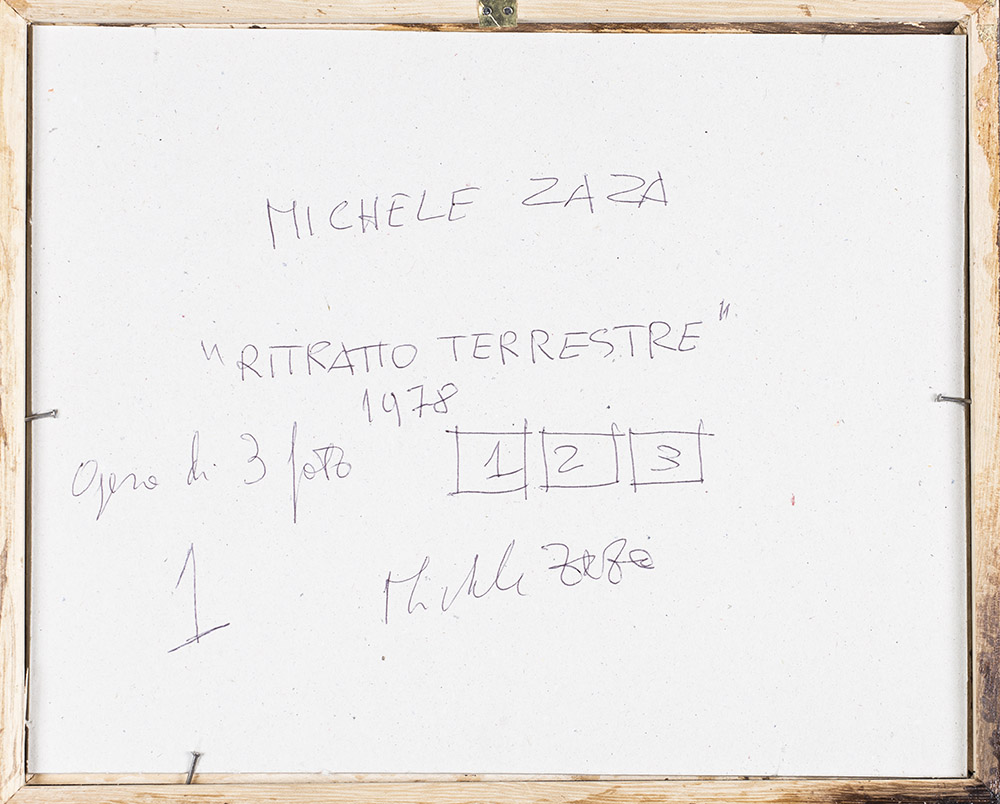 MICHELE ZAZA
"RITRATTO TERRESTRE"
1978
Opera di 3 foto 1 2 3
1 Michele Zaza